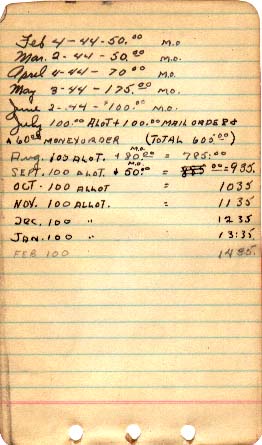 Feb 4-44-50.00 M.O.
Mar. 2-44-50.00 M.O.
April 4-44-70.00 M.O.
May 3-44-175.00 M.O.
June 2-44-$100.00 M.O.
July 100.00 ALOT + 100.00 MAIL ORDER &
60.00 MONEYORDER (TOTAL 605.00)
M.O.
Aug. 100 ALOT. + 80.00 = 785.00
M.O.
SEPT. 100 ALOT. + 50.00 = 00 = 935.
OCT. 100 ALLOT = 1035
NOV. 100 ALLOT. = 1135
DEC. 100 " 1235
JAN. 100 " 13:35
FEB 100 1435.